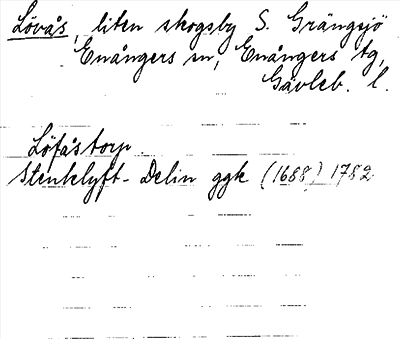 Lövås, liten skogsby S. Grängsjö
Enångers sn, Enångers tg,
Gävleb. l.
Löfåstorp.
Stenklyft- Delin ggk (1688) 1782